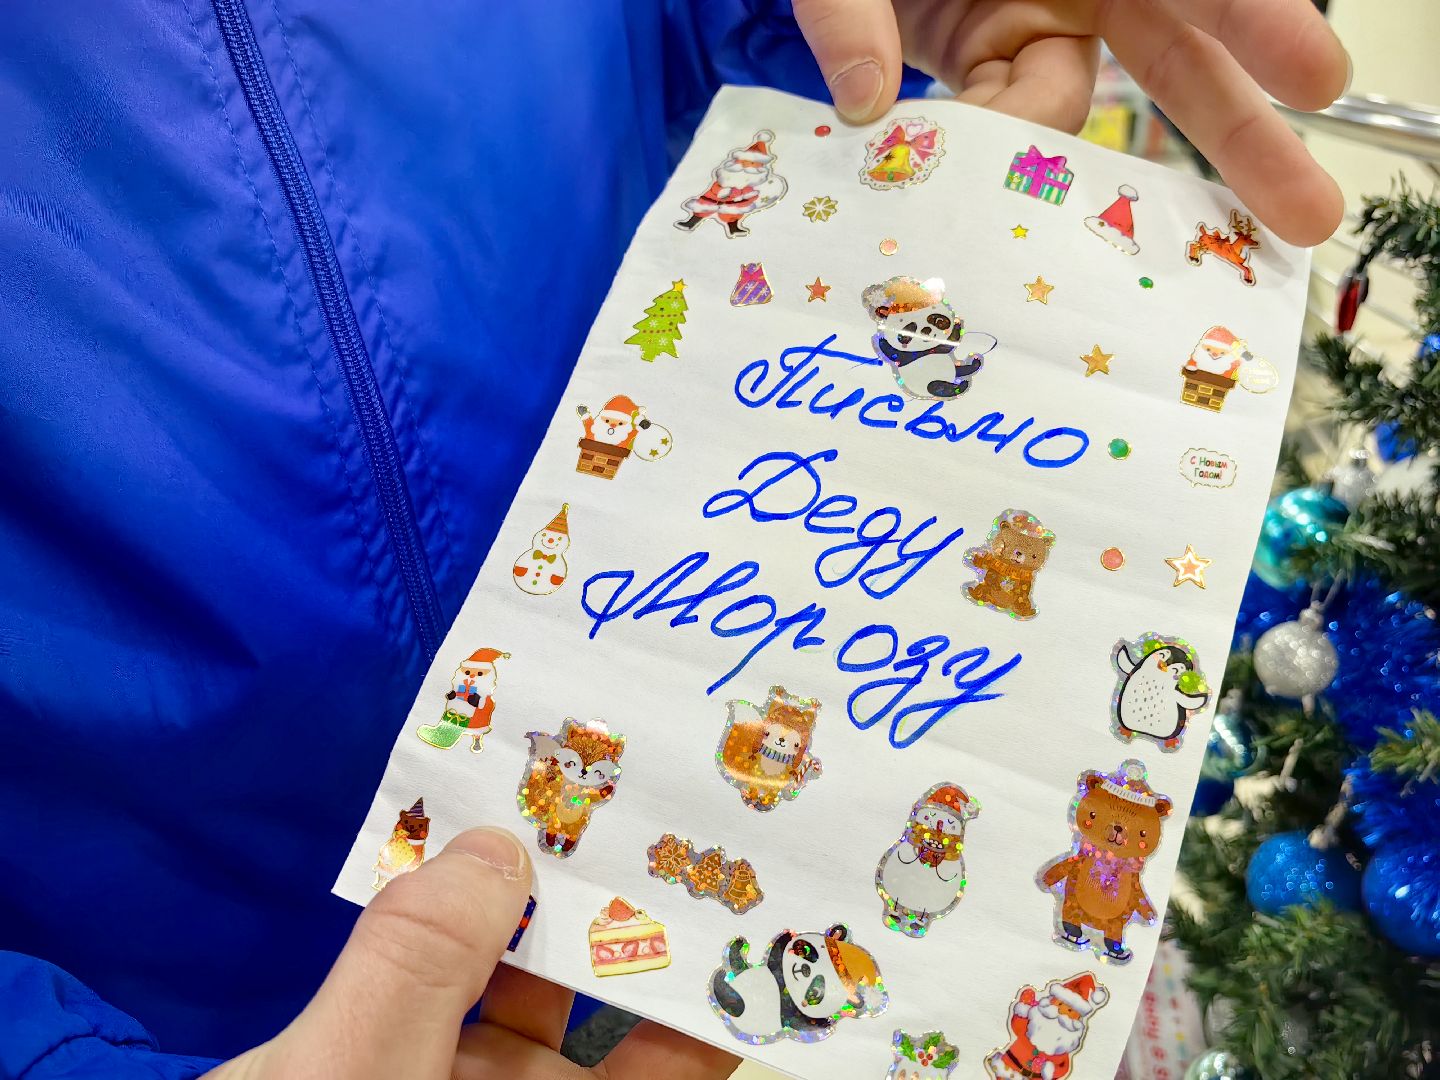 Письмо
Деду
Морозу
С Новым
Годом!